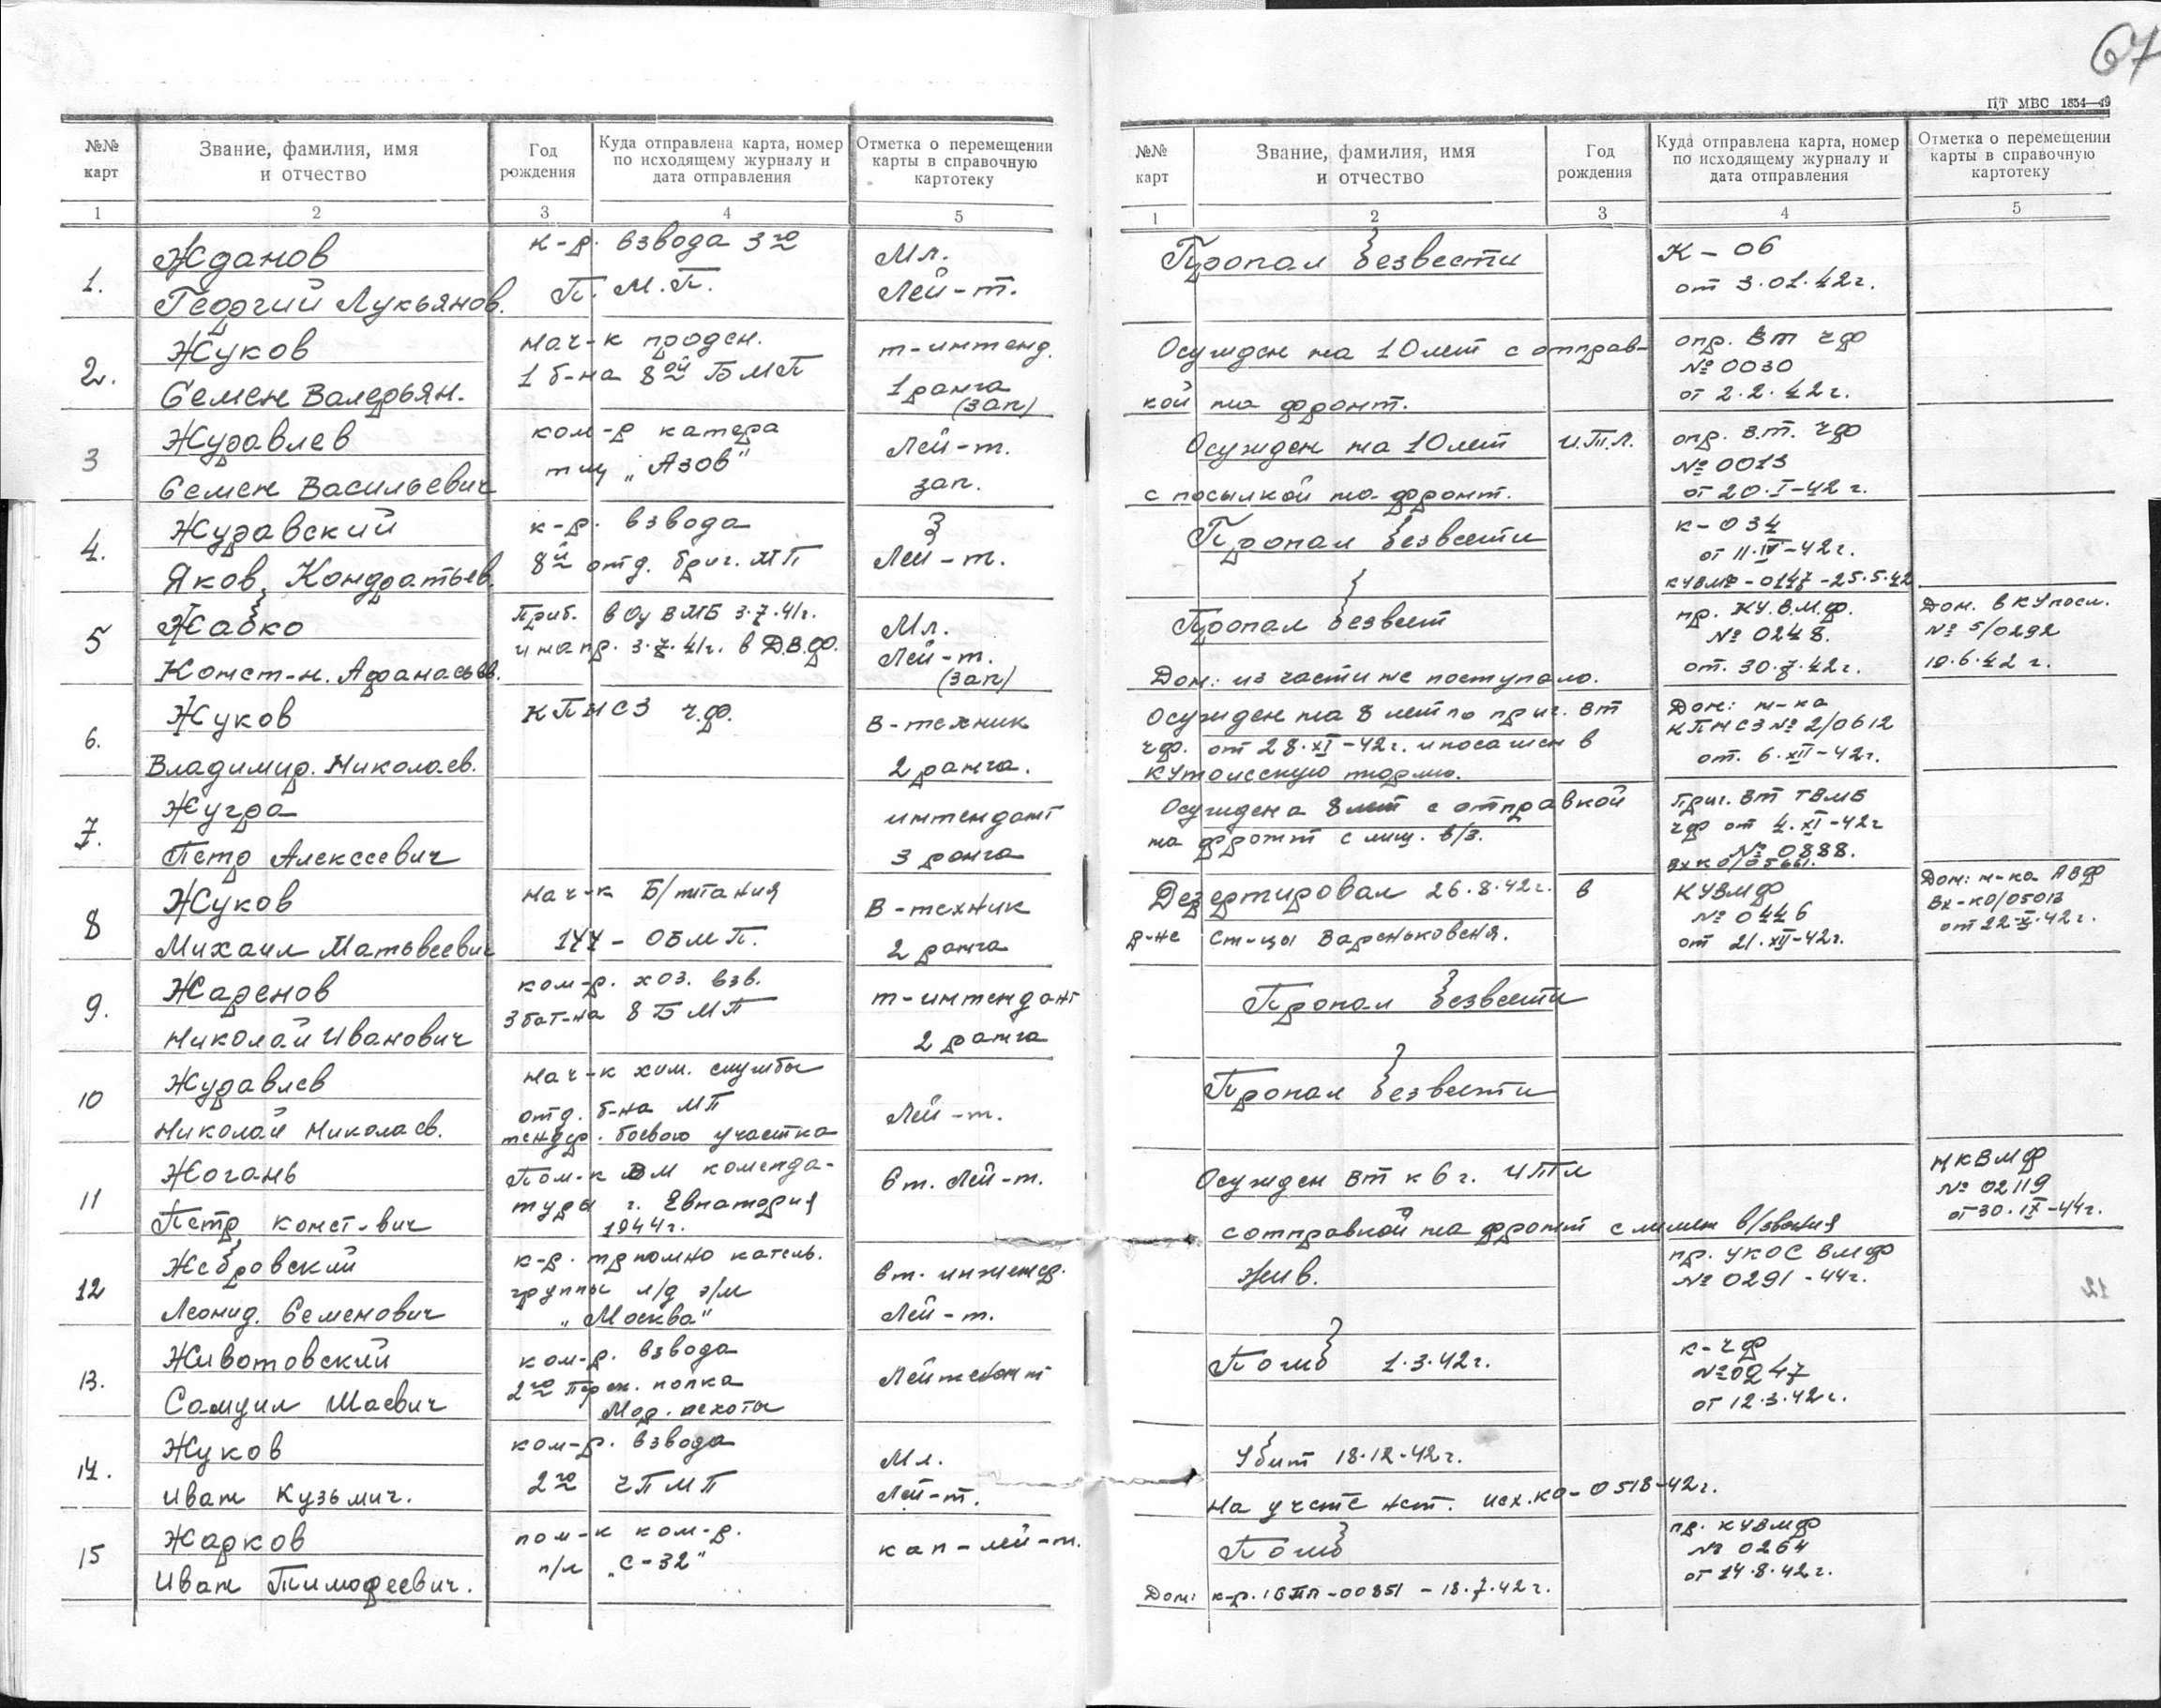 67
ЦТ МВС 1854—49
№№ карт
Звание, фамилия, имя и отчество
Год рождения
Куда отправлена карта, номер по исходящему журналу и дата отправления
Отметка о перемещении карты в справочную картотеку
1 2 3 4 5
1.
Жданов
Георгий Лукьянов.
к-р. взвода 3го
П. М. П.
Мл.
Лей-т.
2.
Жуков
Семен Валерьян.
нач-к проден.
1 б-на 8ой БМП
т-интенд.
1 ранга
(зап)
3
Журавлев
Семен Васильевич
ком-р катера
тщ „Азов"
Лей-т.
зап.
4.
Журавский
Яков, Кондратьев.
к-р. взвода
8й отд. бриг. МП
Лей-т.
5
Жабко
Конст-н. Афанасьев.
Приб. в ОУ ВМБ 3.7.41г.
и напр. 3.7.41г. в Д.В.Ф.
Мл.
Лей-т.
(зап)
6.
Жуков
Владимир. Николаев.
КПНСЗ ч.ф.
В-техник
2 ранга.
7.
Жугра
Петр Алексеевич
интендант
3 ранга
8
Жуков
Михаил Матвеевич
нач-к Б/питания
144 - ОБМП.
В-техник
2 ранга
9.
Жаренов
Николай Иванович
ком-р. хоз. взв.
3 бат-на 8 БМП
т-интендант
2 ранга
10
Журавлев
Николай Николаев.
нач-к хим. службы
отд. б-на МП
тендр. боевого участка
Лей-т.
11
Жогань
Петр, конст-вич
Пом-к ВМ коменда-
туры г. Евпатория
1944г.
Ст. Лей-т.
12
Жебровский
Леонид. Семенович
к-р. трюмно котель.
группы л/д э/м
„Москва"
Ст. инженер.
Лей-т.
13.
Животовский
Самуил Шаевич
ком-р. взвода
2го Перек. полка
Мор. пехоты
Лейтенант
14.
Жуков
Иван Кузьмич.
ком-р. взвода
2го ЧПМП
Мл.
Лей-т.
15
Жарков
Иван Тимофеевич.
пом-к ком-р.
п/л „С-32"
кап-лей-т.
№№ карт
Звание, фамилия, имя и отчество
Год рождения
Куда отправлена карта, номер по исходящему журналу и дата отправления
Отметка о перемещении карты в справочную картотеку
1 2 3 4 5
Пропал безвести
К-06
от 3.01.42г.
Осужден на 10 лет с отправ-
кой на фронт.
опр. Вт чф
№ 0030
от 2.2.42г.
Осужден на 10 лет И.Т.Л.
с посылкой на фронт.
опр. в.т. чф
№ 0013
от 20.I-42г.
Пропал безвести
к-034
от 11.IV-42г.
КУВМФ-0147-25.5.42
Пропал безвест
Дон: из части не поступало.
пр. КУ.В.М.Ф.
№ 0248.
от. 30.7.42г.
Дон. в КУ посл.
№ 5/0292
10.6.42г.
Осужден на 8 лет по приг. Вт
чф. от 28.XI-42г. и посажен в
Кутаисскую тюрьму.
Дон: н-ка
КПНСЗ № 2/0612
от. 6.XII-42г.
Осужден а 8 лет с отправкой
на фронт с лиш. в/з.
Приг. Вт ТВМБ
чф от 4.XI-42г
№ 0888.
вх КО/05661.
Дезертировал 26.8.42г. в
р-не ст-цы Вареньковская.
КУВМФ
№ 0446
от 21.XII-42г.
Дон: н-ка АВФ
Вх-КО/05013
от 22-X-42г.
Пропал безвести
Пропал безвести
Осужден Вт к 6 г. ИТЛ
с отправкой на фронт с лишен в/звания
НКВМФ
№ 02119
от 30.IX-44г.
Жив.
пр. УКОС ВМФ
№ 0291-44г.
Погиб 1.3.42г.
к-чф
№ 0247
от 12.3.42г.
Убит 18.12-42г.
На учете нет. исх. КО-0518-42г.
Погиб
Дон: к-р. 1БПЛ-00851-18.7.42г.
пр. КУВМФ
№ 0264
от 14.8.42г.